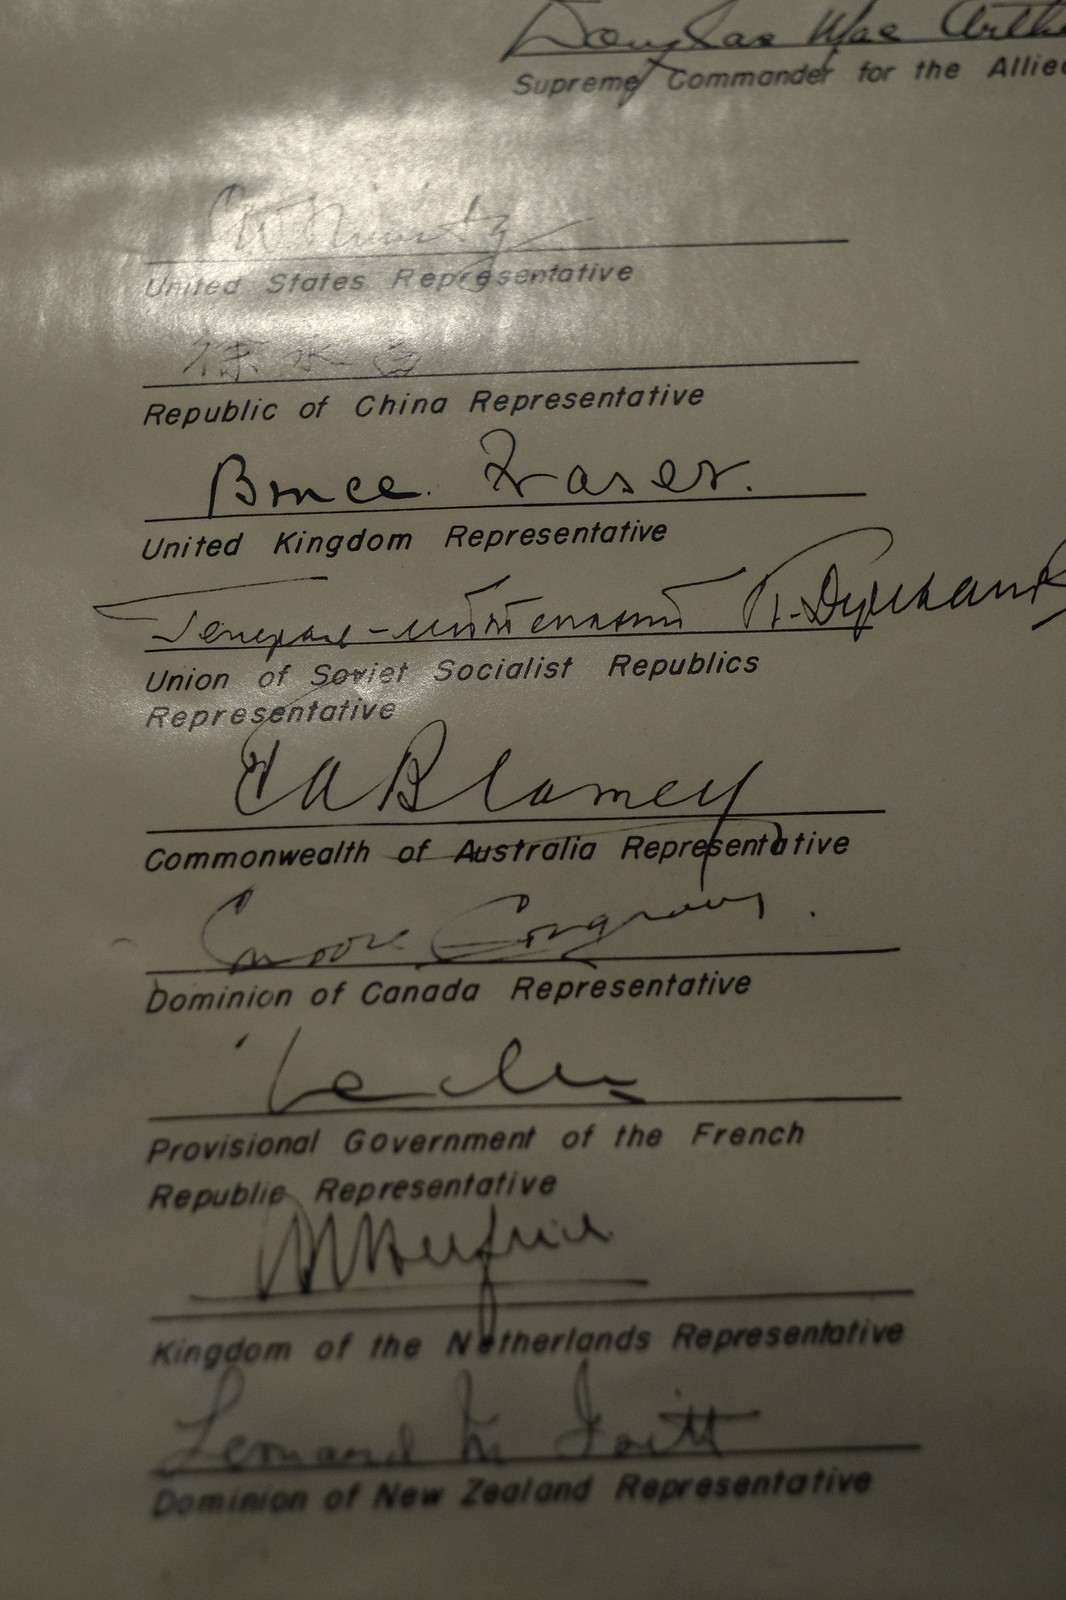 Douglas MacArthu
Supreme Commander for the Allied
C W Nimitz
United States Representative
徐永昌
Republic of China Representative
Bruce Fraser.
United Kingdom Representative
Генерал-лейтенант К. Деревянк
Union of Soviet Socialist Republics
Representative
T A Blamey
Commonwealth of Australia Representative
Moore Cosgrave.
Dominion of Canada Representative
Leclerc
Provisional Government of the French
Republic Representative
Helfrich
Kingdom of the Netherlands Representative
Leonard M Isitt
Dominion of New Zealand Representative